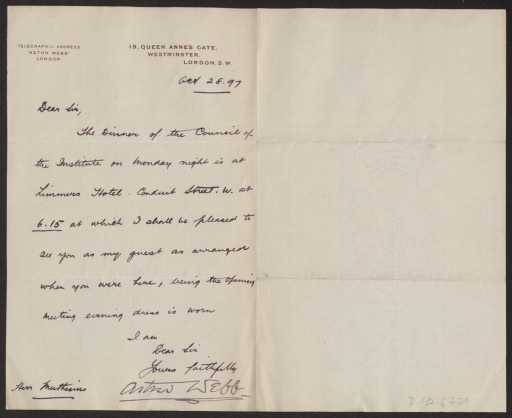 TELEGRAPHIC ADDRESS
"ASTON WEBB"
LONDON
19, QUEEN ANNE'S GATE,
WESTMINSTER,
LONDON, S.W.
Oct 28. 97
Dear Sir,
The Dinner of the Council of
the Institute on Monday night is at
Limmers Hotel. Conduit Street. W. at
6.15 at which I shall be pleased to
see you as my guest as arranged
when you were here, being the opening
meeting evening dress is worn
I am
Dear Sir
Yours faithfully
Aston Webb
Herr Muthesius